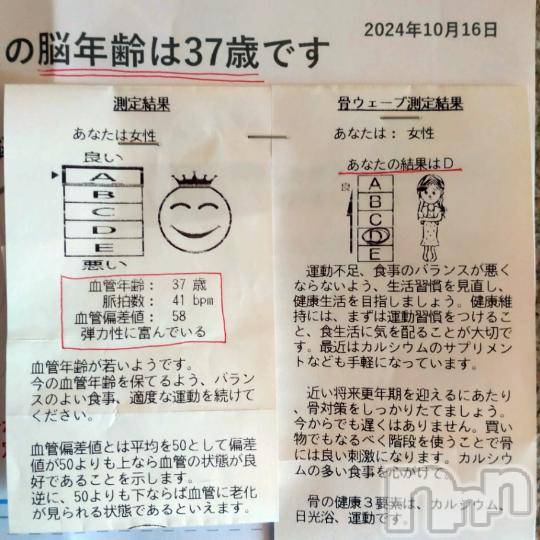 2024年10月16日
の脳年齢は37歳です
測定結果
あなたは女性
良い
A
B
C
D
E
悪い
血管年齢： 37 歳
脈拍数： 41 bpm
血管偏差値： 58
弾力性に富んでいる
血管年齢が若いようです。
今の血管年齢を保てるよう、バラン
スのよい食事、適度な運動を続けて
ください。
血管偏差値とは平均を50として偏差
値が50よりも上なら血管の状態が良
好であることを示します。
逆に、50よりも下ならば血管に老化
が見られる状態であるといえます。
骨ウェーブ測定結果
あなたは： 女性
あなたの結果はD
良
A
B
C
D
E
運動不足、食事のバランスが悪く
ならないよう、生活習慣を見直し、
健康生活を目指しましょう。健康維
持には、まずは運動習慣をつけるこ
と、食生活に気を配ることが大切で
す。最近はカルシウムのサプリメン
トなども手軽になっています。
近い将来更年期を迎えるにあたり
、骨対策をしっかりたてましょう。
今からでも遅くはありません。買い
物でもなるべく階段を使うことで骨
には良い刺激になります。カルシウ
ムの多い食事を心がけて。
骨の健康３要素は、カルシウム、
日光浴、運動です。